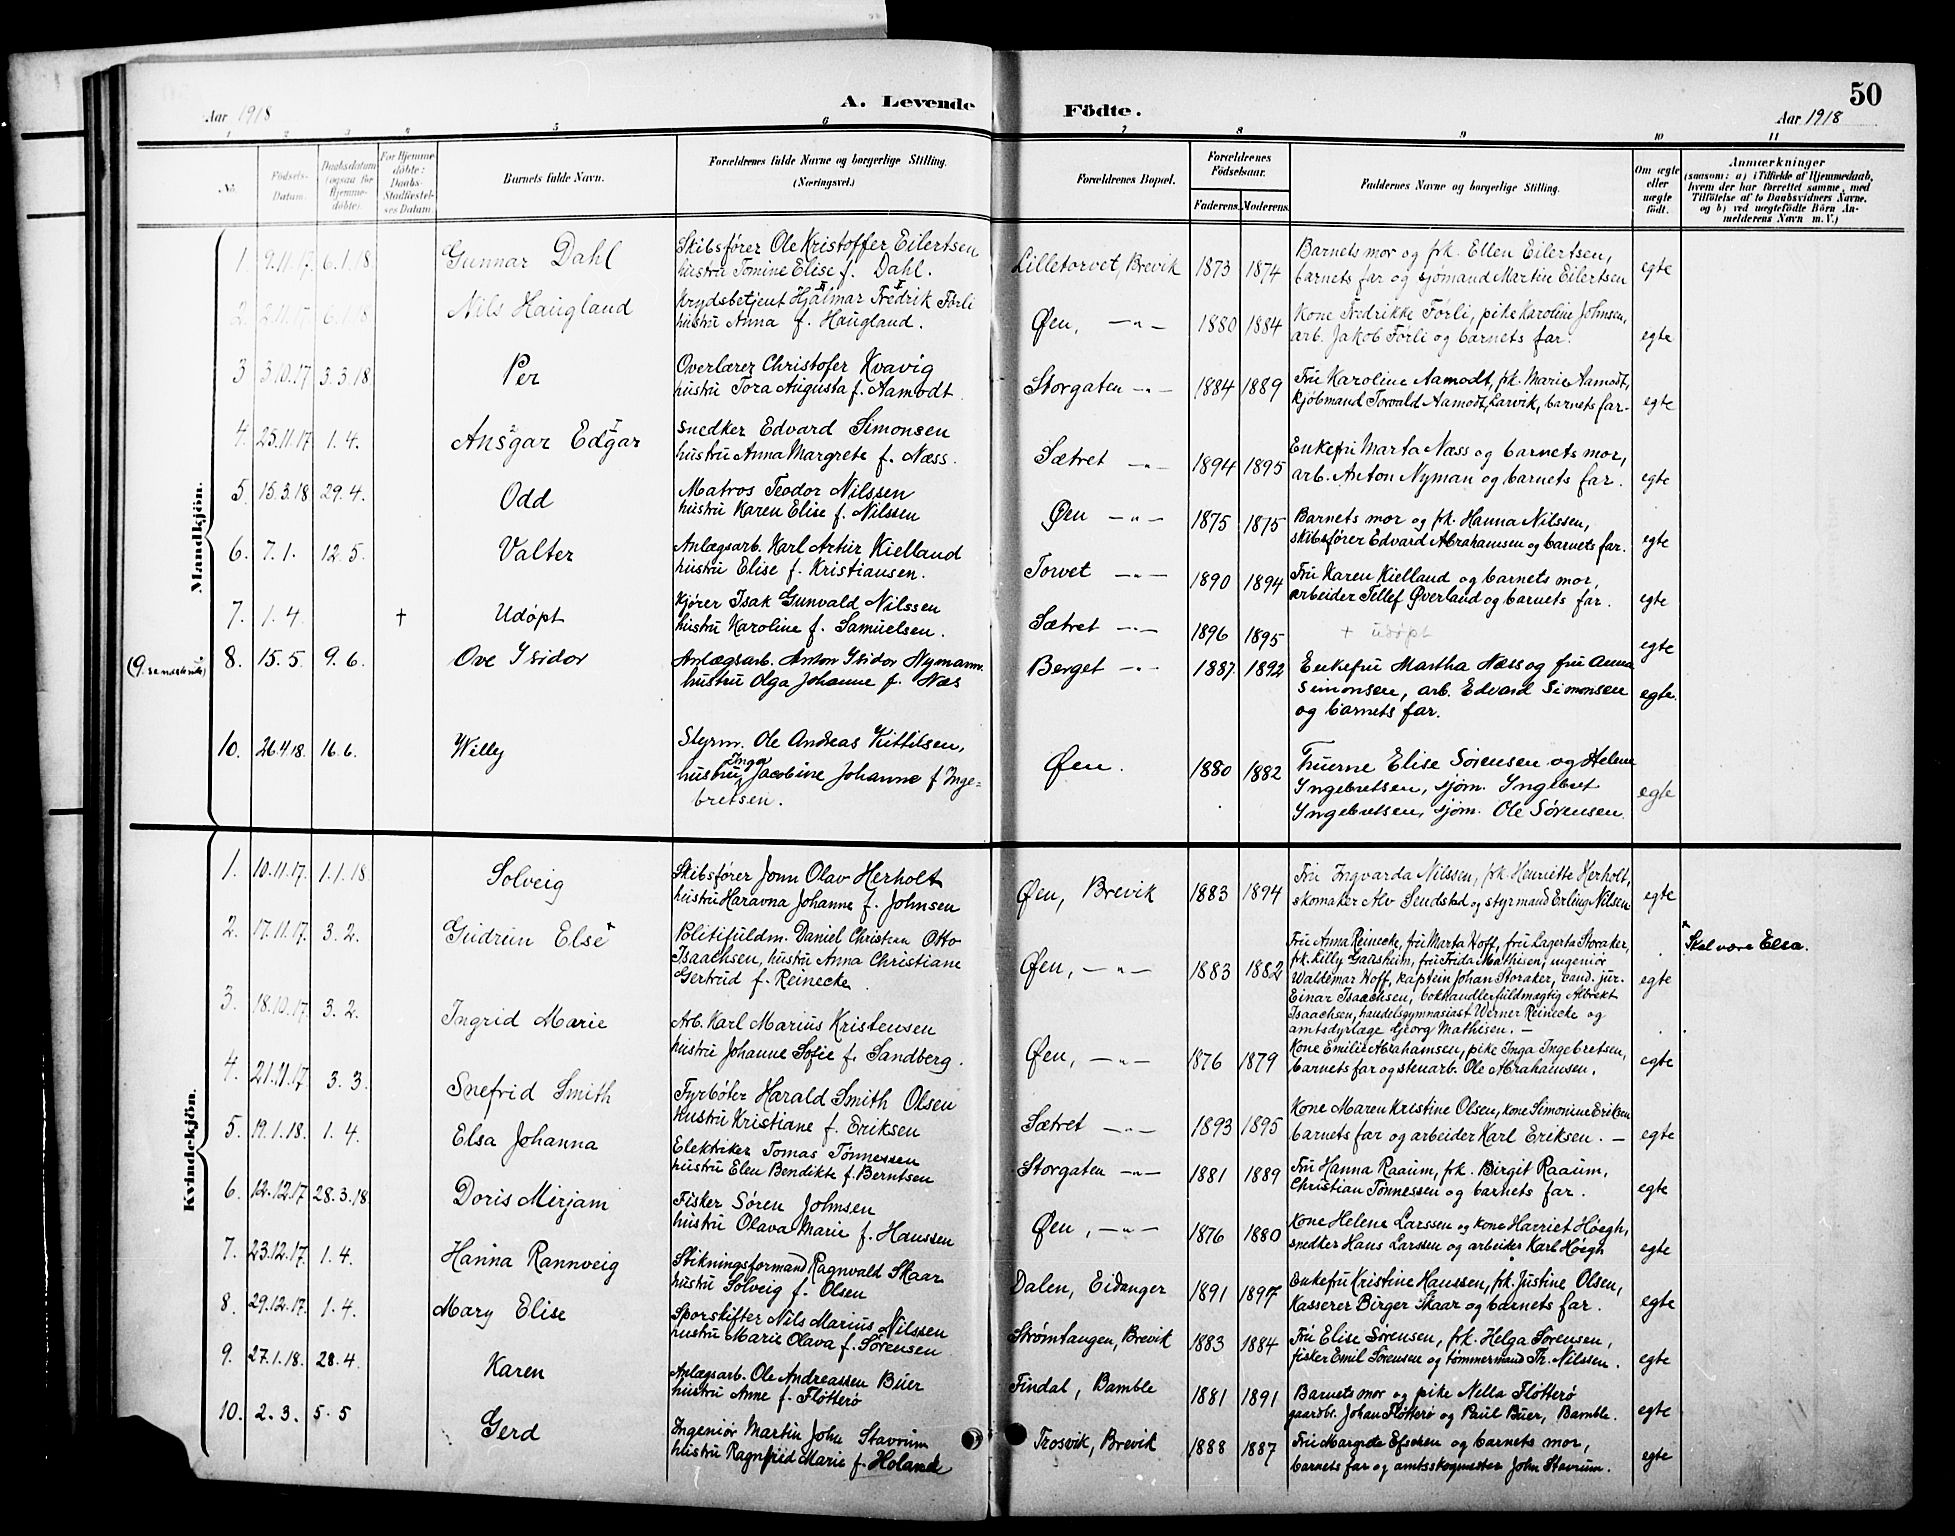 50
Aar 1918
A. Levende Födte.
Aar 1918
1 2 3 4 5 6 7 8 9 10 11
No.
Födsels-Datum.
Daabsdatum (ogsaa for Hjemme-döbte).
For Hjemme-döbte: Daabs-Stadfæstel-ses Datum.
Barnets fulde Navn.
Forældrenes fulde Navne og borgerlige Stilling.
(Næringsvei.)
Forældrenes Bopæl.
Forældrenes Födselsaar.
Faderens. Moderens.
Faddernes Navne og borgerlige Stilling.
Om ægte eller uægte födt.
Anmærkninger
(saasom: a) i Tilfælde af Hjemmedaab,
hvem der har forrettet samme, med
Tilföielse af to Daabsvidners Navne.
og b) ved uægtefödte Börn An-
melderens Navn m. V.)
Mandkjön.
1. 9.11.17. 6.1.18 Gunnar Dahl
Skibsfører Ole Kristoffer Eilertsen
hustru Tomine Elise f. Dahl.
Lilletorvet, Brevik 1873 1874
Barnets mor og frk. Ellen Eilertsen,
barnets far og sjømand Martin Eilertsen
egte
2. 2.11.17. 6.1.18 Nils Haugland
Krydsbetjent Hjalmar II Fredrik I Førli
hustru Anna f. Haugland.
Øen, —"— 1880 1884
Kone Fredrikke Førli, pike Karoline Johnsen,
arb. Jakob Førli og barnets far.
egte
3 3.10.17 3.3.18 Per
Overlærer Christofer Kvavig
hustru Tora Augusta f. Aamodt
Storgaten —"— 1884 1889
Fru Karoline Aamodt, frk. Marie Aamodt,
kjøbmand Torvald Aamodt, Larvik, barnets far.
egte
4. 25.11.17 1.4. Ansgar 2 Edgar 1
Snedker Edvard Simonsen
hustru Anna Margrete f. Næss.
Sætret —"— 1894 1895
Enkefru Marta Næss og barnets mor,
arb. Anton Nyman og barnets far.
egte
5. 15.3.18 29.4. Odd
Matros Teodor Nilssen
hustru Karen Elise f. Nilssen
Øen —"— 1875 1875
Barnets mor og frk. Hanna Nilssen,
skibsfører Edvard Abrahamsen og barnets far.
egte
6. 7.1. 12.5. Valter
Anlægsarb. Karl Artur Kielland
hustru Elise f. Kristiansen.
Torvet —"— 1890 1894
Fru Karen Kielland og barnets mor,
arbeider Tellef Øverland og barnets far.
egte
7. 1.4. + Udøpt
Kjører Isak Gunvald Nilssen
hustru Karoline f. Samuelsen.
Sætret —"— 1896 1895
+ udøpt
egte
8. 15.5. 9.6. Ove Isidor
Anlægsarb. Anton Isidor Nymann.
hustru Olga Johanne f. Næs
Berget —"— 1887. 1892
Enkefru Martha Næss og fru Anna
Simonsen, arb. Edvard Simonsen
og barnets far.
egte.
10. 26.4.18. 16.6. Willy
Styrm. Ole Andreas Kittilsen,
hustru Inga Jacobine Johanne f Inge-
bretsen.
Øen. 1880 1882
Fruerne Elise Sørensen og Helene
Ingebretsen, sjøm. Ingebret
Ingebretsen, sjøm. Ole Sørensen.
egte
Kvindekjön.
1. 10.11.17. 1.1.18 Solveig
Skibsfører Jonn Olav Herholt
hustru Haravna Johanne f. Johnsen
Øen, Brevik 1883 1894
Fru Ingvarda Nilssen, frk. Henriette Herholt,
skomaker Alv Sendstad og styrmand Erling Nilsen
egte
2. 17.11.17. 3.2. Gudrun Else x
Politifuldm. Daniel Christian Otto
Isaachsen, hustru Anna Christiane
Gertrud f. Reinecke
Øen, —"— 1883 1882
Fru Anna Reinecke, fru Marta Hoff, fru Lagerta Storaker,
frk. Lilly Gaasheim, fru Frida Mathisen, ingeniør
Waldemar Hoff, kaptein Johan Storaker, cand. jur.
Einar Isaachsen, bokhandlerfuldmægtig Albrekt
Isaachsen, handelsgymnasiast Werner Reinecke og
amtsdyrlæge Georg Mathisen. —
egte
x Skal være Elsa.
3. 18.10.17 3.2. Ingrid Marie
Arb. Karl Marius Kristensen
hustru Johanne Sofie f. Sandberg.
Øen, —"— 1876 1879
Kone Emilie Abrahamsen, pike Inga Ingebretsen,
barnets far og stenarb. Ole Abrahamsen.
egte
4. 21.11.17 3.3. Snefrid Smith
Fyrbøter Harald Smith Olsen
hustru Kristiane f. Eriksen
Sætret —"— 1893 1895
Kone Maren Kristine Olsen, kone Simonine Eriksen
barnets far og arbeider Karl Eriksen. —
egte
5. 19.1.18. 1.4. Elsa Johanna
Elektriker Tomas Tønnessen
hustru Elen Bendikte f. Berntsen
Storgaten —"— 1881 1889
Fru Hanna Raaum, frk. Birgit Raaum,
Christian Tønnessen og barnets far.
egte
6. 12.12.17 28.3.18 Doris Mirjam
Fisker Søren Johnsen
hustru Olava Marie f. Hanssen
Øen, —"— 1876 1880
Kone Helene Larssen og kone Harriet Høegh,
snedker Hans Larssen og arbeider Karl Høegh
egte
7. 23.12.17. 1.4. Hanna Rannveig
Stikningsformand Ragnvald Skaar
hustru Solveig f. Olsen
Dalen, Eidanger 1891 1897
Enkefru Kristine Hanssen, frk. Justine Olsen,
Kasserer Birger Skaar og barnets far.
egte
8. 29.12.17. 1.4. Mary Elise
Sporskifter Nils Marius Nilssen
hustru Marie Olava f. Sørensen
Strømtangen, Brevik 1883 1884
Fru Elise Sørensen, frk. Helga Sørensen,
fisker Emil Sørensen og tømmermand Th. Nilssen.
egte
9. 27.1.18. 28.4. Karen
Anlægsarb. Ole Andreassen Buer
hustru Anne f. Fløtterø
Findal, Bamble 1881 1891
Barnets mor og pike Nella Fløtterø
gaardbr. Johan Fløtterø og Paul Buer, Bamble.
egte
10. 2.3. 5.5 Gerd
Ingeniør Martin John Stavrum
hustru Ragnfrid Marie f. Holand
Trosvik, Brevik 1888 1887
Fru Margrete og barnets mor,
barnets far og amtsskogmester John Stavrum.
egte